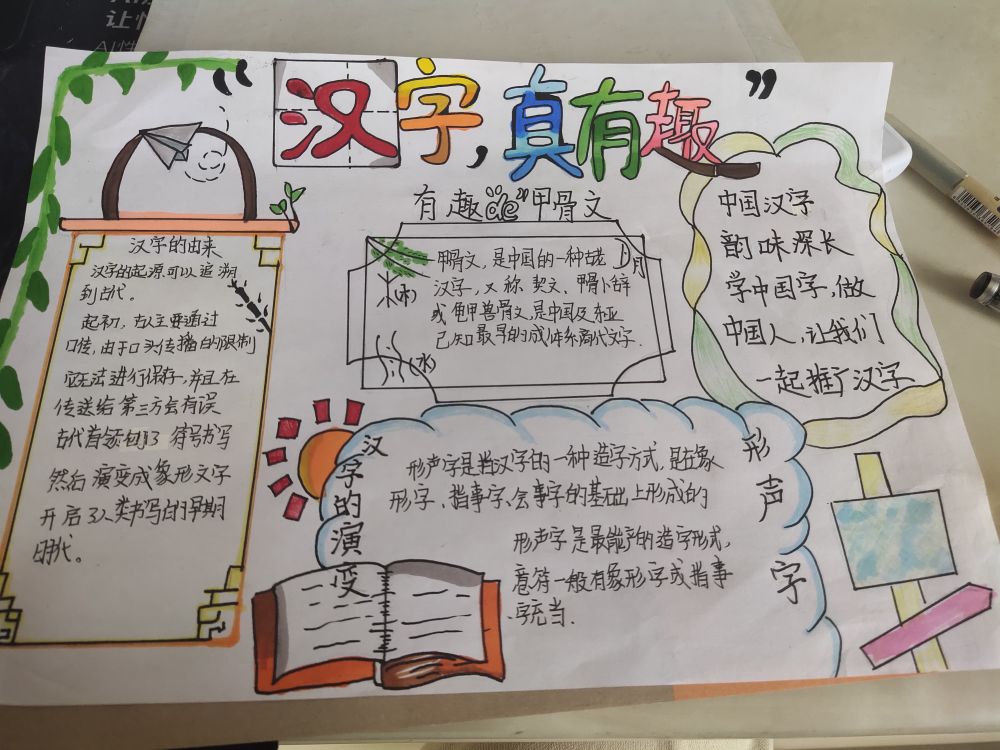 让
AI性
“汉字,真有趣”
汉字的由来
汉字的起源可以追溯
到古代。
起初,古人主要通过
口传,由于口头传播的限制
应无法进行保存,并且在
传送给第三方会有误
古代首领包了3 符号书写
然后演变成象形文字
开启了人类书写的早期
时代。
有趣de甲骨文
甲骨文,是中国的一种古老
汉字,又称契文、甲骨卜辞
或龟甲兽骨文,是中国及东亚
已知最早的成体系商代文字.
月
(木)
(水)
中国汉字
韵味深长
学中国字,做
中国人,让我们
一起推广汉字
汉字的演变
形声字
形声字是当汉字的一种造字方式,是在象
形字、指事字、会事字的基础上形成的
形声字是最能产的造字形式,
意符一般有象形字或指事
字充当.